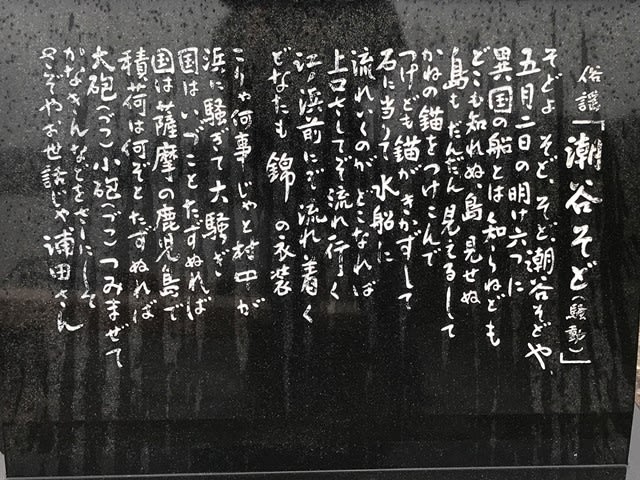 俗謡「潮谷そど(騒動)」
そどよ そど、そど、潮谷そどや、
五月二日の明け六つに
異国の船とは知らねども
どこも知れぬ島見せぬ
島もだんだん見えるして
かねの錨をつけこんで
つけども錨がきかずして
石に当りて水船に
流れいくのがどこなれば
上口さしてぞ流れ行く
江の浜前にぞ流れ着く
どなたも錦の衣装
こりゃ何事じゃと村中が
浜に騒ぎて大騒ぎ
国はいづことたずぬれば
国は薩摩の鹿児島で
積荷は何ぞとたずぬれば
大砲(づつ)小砲(づつ)つみませて
かなさんなどをさしにして
さぞやお世話じゃ浦田さん